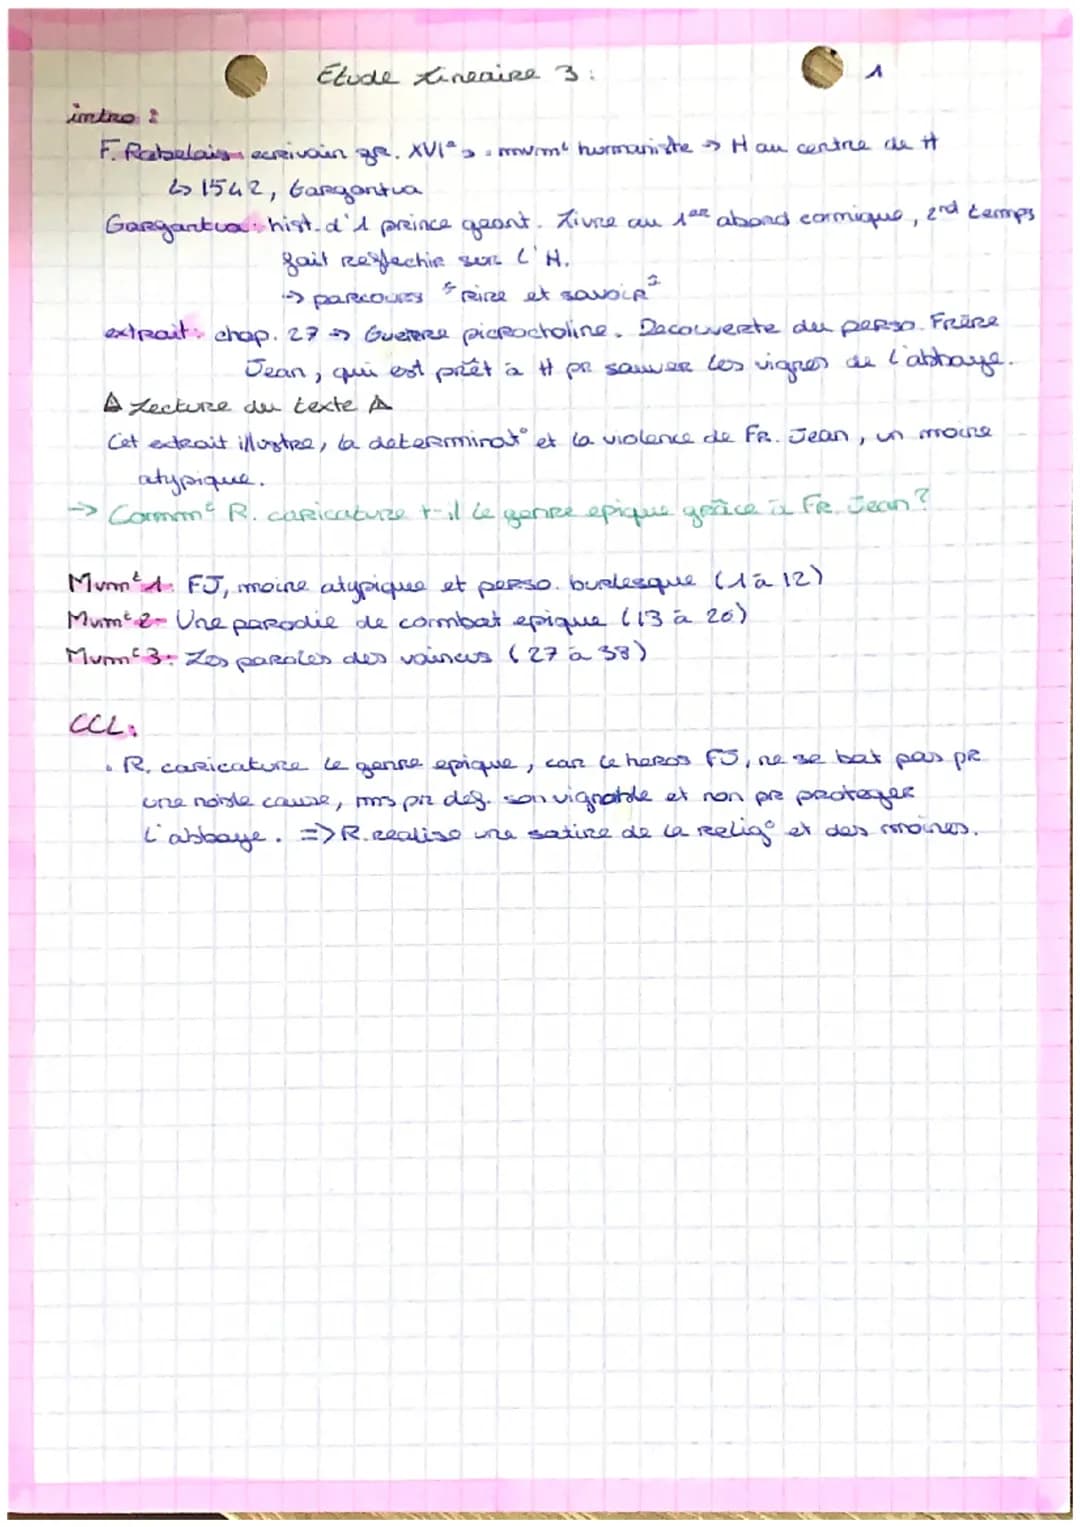 Etude Lineaire 3 :
1
intro :
F. Rabelais ecrivain gr. XVIe s. mvmt humaniste → H au centre de tt
↳ 1542, Gargantua
Gargantua : hist. d'1 prince geant. Livre au 1er abord comique, 2nd temps
fait reflechir sur l'H.
→ parcours "rire et savoir"
extrait : chap. 27 → Guerre picrocholine. Decouverte du perso. Frère
Jean, qui est prêt à tt pr sauver les vignes de l'abbaye.
△ Lecture du texte △
Cet extrait illustre, la determinat° et la violence de Fr. Jean, un moine
atypique.
→ Commt R. caricature t-il le genre epique grâce à Fr. Jean ?
Mvmt 1 : FJ, moine atypique et perso. burlesque (1 à 12)
Mvmt 2 - Une parodie de combat epique (13 à 26)
Mvmt 3 : Les paroles des vaincus (27 à 38)
CCL :
. R. caricature le genre epique, car le heros FJ, ne se bat pas pr
une noble cause, ms pr def. son vignoble et non pr proteger
l'abbaye. => R. realise une satire de la relig° et des moines.